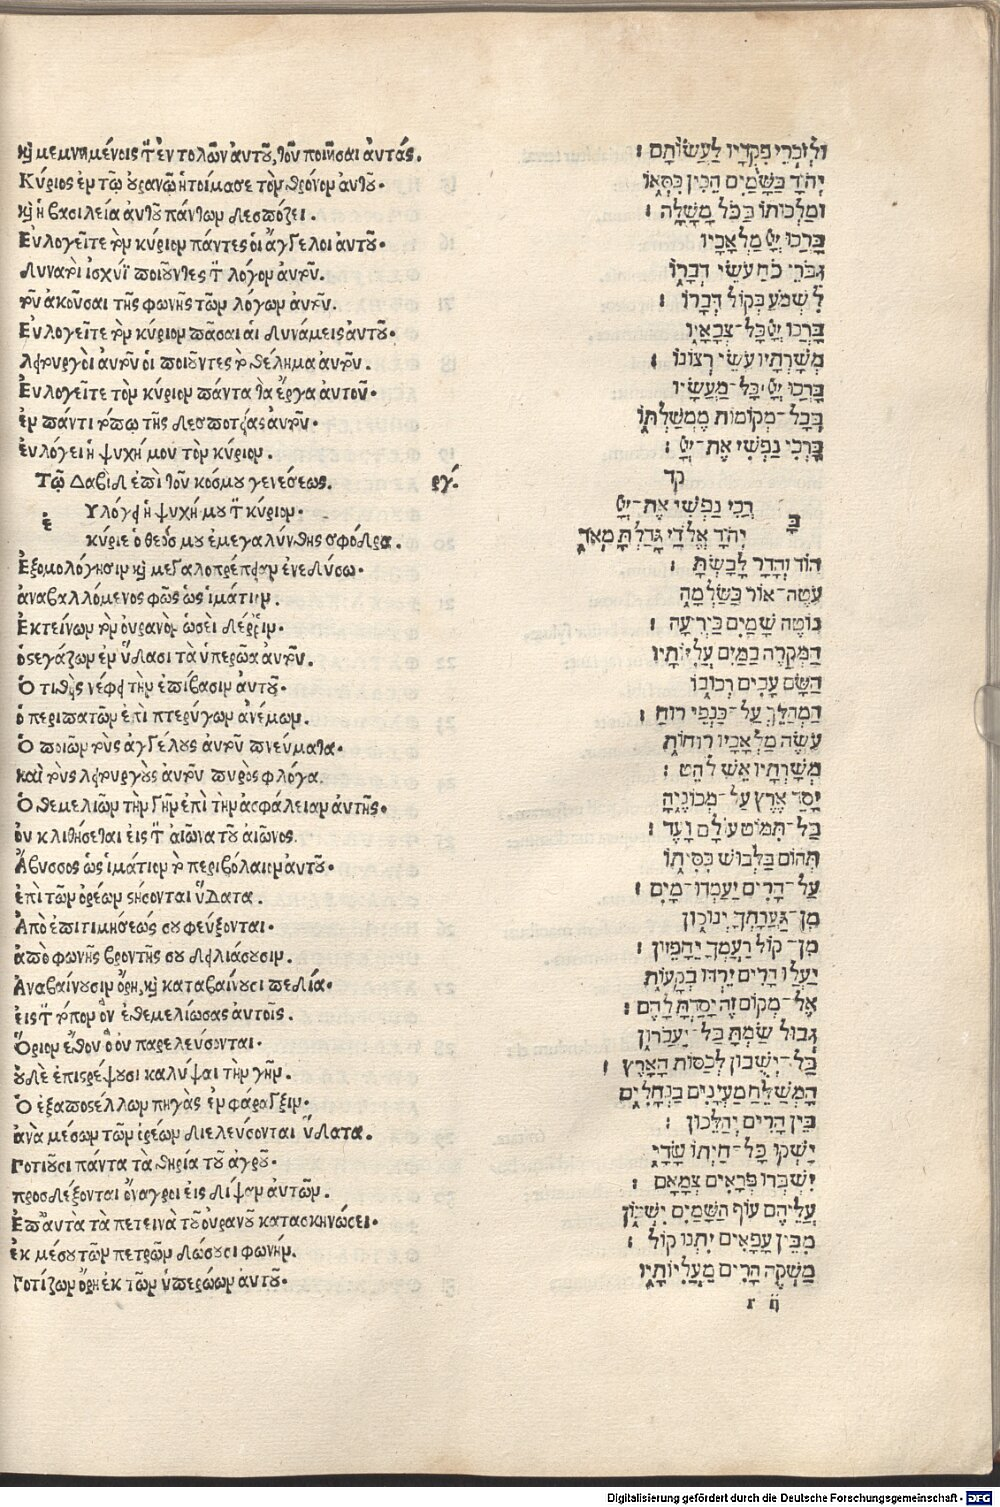 καὶ μεμνημένοις τῶν ἐντολῶν αὐτοῦ, τοῦ ποιῆσαι αὐτάς.
Κύριος ἐν τῷ οὐρανῷ ἡτοίμασε τὸν θρόνον αὐτοῦ·
καὶ ἡ βασιλεία αὐτοῦ πάντων δεσπόζει.
Εὐλογεῖτε τὸν κύριον πάντες οἱ ἄγγελοι αὐτοῦ·
δυνατοὶ ἰσχύϊ ποιοῦντες τὸν λόγον αὐτοῦ.
τοῦ ἀκοῦσαι τῆς φωνῆς τῶν λόγων αὐτοῦ.
Εὐλογεῖτε τὸν κύριον πᾶσαι αἱ δυνάμεις αὐτοῦ·
λειτουργοὶ αὐτοῦ οἱ ποιοῦντες τὸ θέλημα αὐτοῦ.
Εὐλογεῖτε τὸν κύριον πάντα τὰ ἔργα αὐτοῦ·
ἐν πάντι τόπῳ τῆς δεσποτείας αὐτοῦ·
εὐλόγει ἡ ψυχή μου τὸν κύριον.
Τῷ Δαβὶδ ἐπὶ τοῦ κόσμου γενέσεως. ργ΄.
ἐ Υλόγει ἡ ψυχή μου τὸν κύριον·
κύριε ὁ θεός μου ἐμεγαλύνθης σφόδρα.
Ἐξομολόγησιν καὶ μεγαλοπρέπειαν ἐνεδύσω·
ἀναβαλλόμενος φῶς ὡς ἱμάτιον.
Ἐκτείνων τὸν οὐρανὸν ὡσεὶ δέῤῥιν·
ὁ στεγάζων ἐν ὕδασι τὰ ὑπερῶα αὐτοῦ.
Ὁ τιθεὶς νέφη τὴν ἐπίβασιν αὐτοῦ·
ὁ περιπατῶν ἐπὶ πτερύγων ἀνέμων.
Ὁ ποιῶν τοὺς ἀγγέλους αὐτοῦ πνεύματα·
καὶ τοὺς λειτουργοὺς αὐτοῦ πυρὸς φλόγα.
Ὁ θεμελιῶν τὴν γῆν ἐπὶ τὴν ἀσφάλειαν αὐτῆς·
οὐ κλιθήσεται εἰς τὸν αἰῶνα τοῦ αἰῶνος.
Ἄβυσσος ὡς ἱμάτιον τὸ περιβόλαιον αὐτοῦ·
ἐπὶ τῶν ὀρέων στήσονται ὕδατα.
Ἀπὸ ἐπιτιμήσεώς σου φεύξονται·
ἀπὸ φωνῆς βροντῆς σου δειλιάσουσιν.
Ἀναβαίνουσιν ὄρη, καὶ καταβαίνουσι πεδία·
εἰς τὸν τόπον ὃν ἐθεμελίωσας αὐτοῖς.
Ὅριον ἔθου ὃ οὐ παρελεύσονται·
οὐδὲ ἐπιστρέψουσι καλύψαι τὴν γῆν.
Ὁ ἐξαποστέλλων πηγὰς ἐν φάραγξιν·
ἀνὰ μέσων τῶν ὀρέων διελεύσονται ὕδατα.
Ποτιοῦσι πάντα τὰ θηρία τοῦ ἀγροῦ·
προσδέξονται ὄναγροι εἰς δίψαν αὐτῶν.
Ἐπ αὐτὰ τὰ πετεινὰ τοῦ οὐρανοῦ κατασκηνώσει·
ἐκ μέσου τῶν πετρῶν δώσουσι φωνήν.
Ποτίζων ὄρη ἐκ τῶν ὑπερώων αὐτοῦ·
וּלְזֹכְרֵי פִקֻּדָיו לַעֲשׂוֹתָם :
יְהוָֹה בַּשָּׁמַיִם הֵכִין כִּסְאוֹ
וּמַלְכוּתוֹ בַּכֹּל מָשָׁלָה :
בָּרְכוּ יְיָ מַלְאָכָיו
גִּבֹּרֵי כֹחַ עֹשֵׂי דְבָרוֹ
לִשְׁמֹעַ בְּקוֹל דְּבָרוֹ :
בָּרְכוּ יְיָ כָּל־צְבָאָיו
מְשָׁרְתָיו עֹשֵׂי רְצוֹנוֹ :
בָּרְכוּ יְיָ כָּל־מַעֲשָׂיו
בְּכָל־מְקוֹמוֹת מֶמְשַׁלְתּוֹ
בָּרְכִי נַפְשִׁי אֶת־יְיָ :
קד
בָּ רְכִי נַפְשִׁי אֶת־יְיָ
יְהוָֹה אֱלֹהַי גָּדַלְתָּ מְאֹד
הוֹד וְהָדָר לָבָשְׁתָּ :
עֹטֶה־אוֹר כַּשַּׂלְמָה
נוֹטֶה שָׁמַיִם כַּיְרִיעָה :
הַמְקָרֶה בַמַּיִם עֲלִיּוֹתָיו
הַשָּׂם עָבִים רְכוּבוֹ
הַמְהַלֵּךְ עַל־כַּנְפֵי רוּחַ :
עֹשֶׂה מַלְאָכָיו רוּחוֹת
מְשָׁרְתָיו אֵשׁ לֹהֵט :
יָסַד אֶרֶץ עַל־מְכוֹנֶיהָ
בַּל־תִּמּוֹט עוֹלָם וָעֶד :
תְּהוֹם כַּלְּבוּשׁ כִּסִּיתוֹ
עַל־הָרִים יַעַמְדוּ־מָיִם :
מִן־גַּעֲרָתְךָ יְנוּסוּן
מִן־קוֹל רַעַמְךָ יֵחָפֵזוּן :
יַעֲלוּ הָרִים יֵרְדוּ בְקָעוֹת
אֶל־מְקוֹם זֶה יָסַדְתָּ לָהֶם :
גְּבוּל שַׂמְתָּ בַּל־יַעֲבֹרוּן
בַּל־יְשֻׁבוּן לְכַסּוֹת הָאָרֶץ :
הַמְשַׁלֵּחַ מַעְיָנִים בַּנְּחָלִים
בֵּין הָרִים יְהַלֵּכוּן :
יַשְׁקוּ כָּל־חַיְתוֹ שָׂדָי
יִשְׁבְּרוּ פְרָאִים צְמָאָם :
עֲלֵיהֶם עוֹף הַשָּׁמַיִם יִשְׁכּוֹן
מִבֵּין עֳפָאיִם יִתְּנוּ קוֹל :
מַשְׁקֶה הָרִים מֵעֲלִיּוֹתָיו
r ii
Digitalisierung gefördert durch die Deutsche Forschungsgemeinschaft - DFG